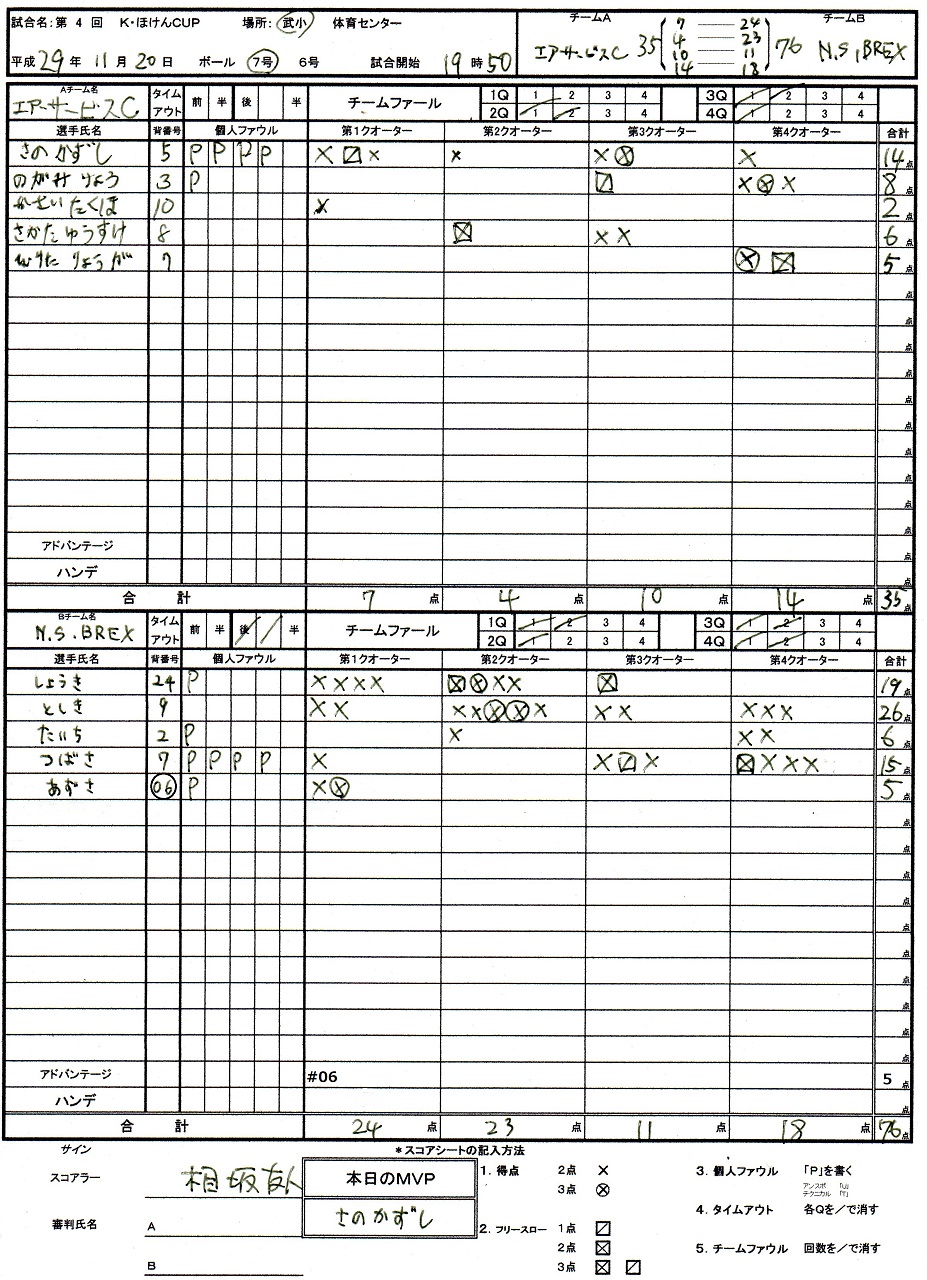 試合名:第 4 回 K・ほけんCUP 場所: 武小 体育センター
チームA チームB
エアーサービスC 35 76 N.S.BREX
7 — 24
4 — 23
10 — 11
14 — 18
平成29年 11月20日 ボール 7号 6号 試合開始 19時50
Aチーム名 エアーサービスC タイムアウト 前 半 後 半 チームファール 1Q 1 2 3 4 3Q 1 2 3 4
2Q 1 2 3 4 4Q 1 2 3 4
選手氏名 背番号 個人ファウル 第1クオーター 第2クオーター 第3クオーター 第4クオーター 合計
さのかずし 5 P P P P × 〼 × × × ⊗ × 14点
のがみりょう 3 P 〼 × ⊗ × 8点
たくほ 10 × 2点
さかたゆうすけ 8 ☒ × × 6点
りょうが 7 ⊗ ☒ 5点
アドバンテージ 点
ハンデ 点
合 計 7点 4点 10点 14点 35点
Bチーム名 N.S.BREX タイムアウト 前 半 後 半 チームファール 1Q 1 2 3 4 3Q 1 2 3 4
2Q 1 2 3 4 4Q 1 2 3 4
選手氏名 背番号 個人ファウル 第1クオーター 第2クオーター 第3クオーター 第4クオーター 合計
しょうき 24 P × × × × ☒ ⊗ × × ☒ 19点
としき 9 × × × × ⊗ ⊗ × × × × × × 26点
たいち 2 P × × × 6点
つばさ 7 P P P P × × 〼 × ☒ × × × 15点
あずさ 06 P × ⊗ 5点
アドバンテージ #06 5点
ハンデ 点
合 計 24点 23点 11点 18点 76点
サイン
スコアラー 相坂
本日のMVP
さのかずし
審判氏名 A
B
*スコアシートの記入方法
1. 得点 2点 ×
3点 ⊗
2. フリースロー 1点 〼
2点 ☒
3点 ☒ 〼
3. 個人ファウル 「P」を書く
アンスポ 「U」
テクニカル 「T」
4. タイムアウト 各Qを/で消す
5. チームファウル 回数を/で消す